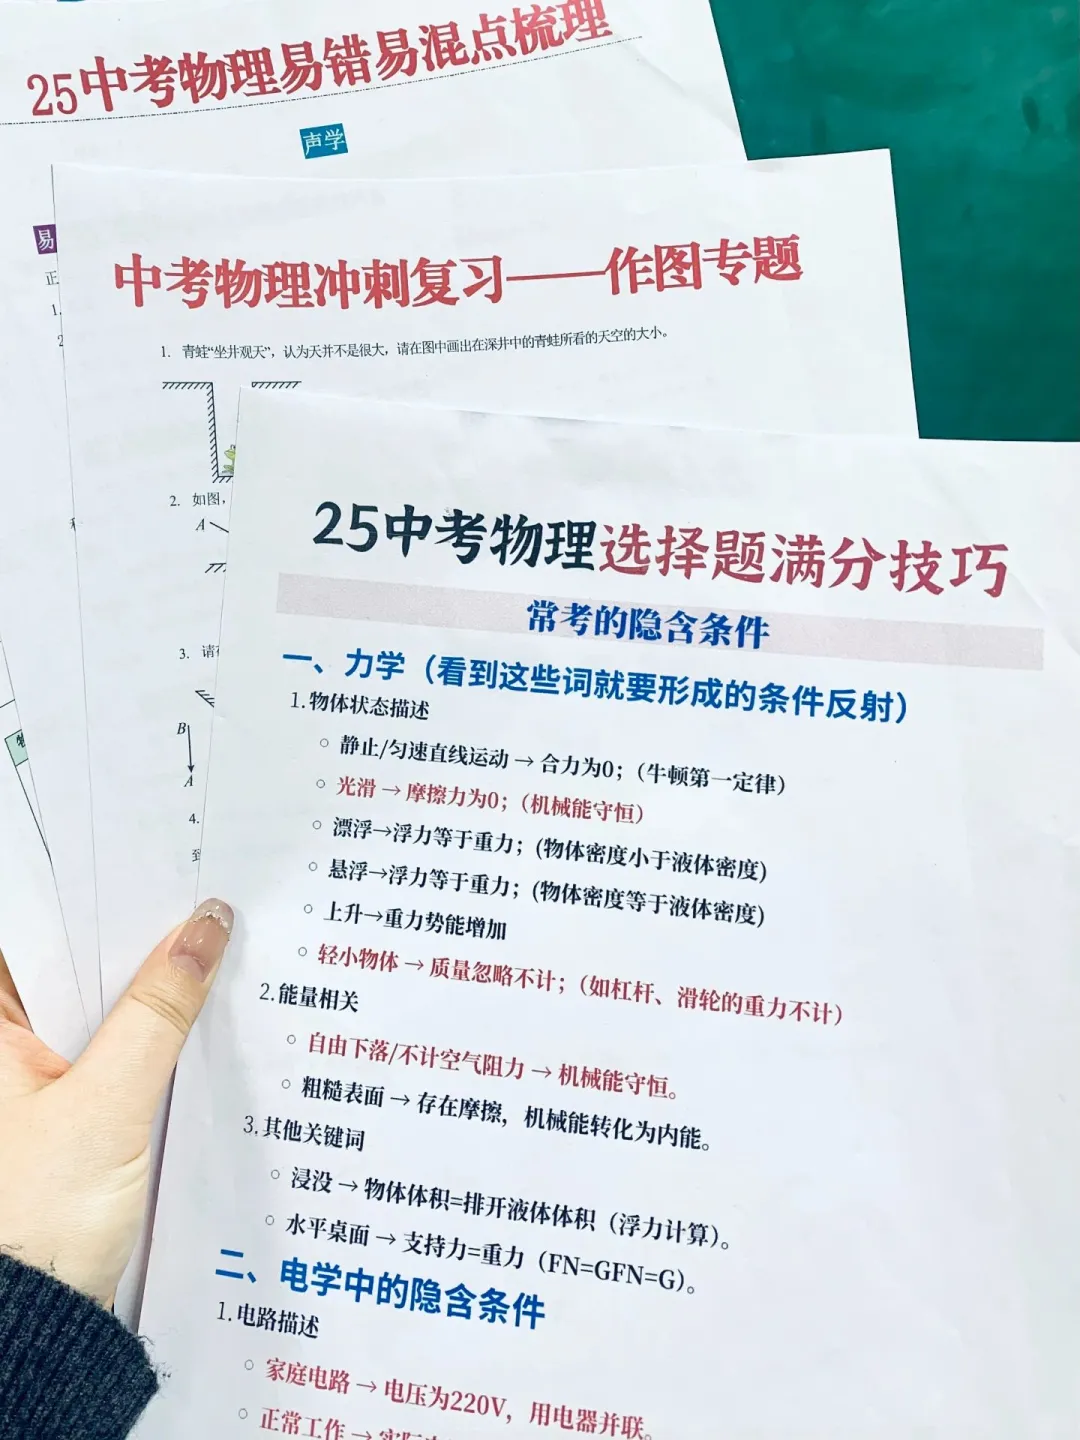 25中考物理易错易混点梳理
声学
易
正
1.
2
中考物理冲刺复习——作图专题
1. 青蛙“坐井观天”，认为天并不是很大，请在图中画出在深井中的青蛙所看的天空的大小。
2. 如图，
A
3. 请
B
A
4.
25中考物理选择题满分技巧
常考的隐含条件
一、力学（看到这些词就要形成的条件反射）
1.物体状态描述
○ 静止/匀速直线运动 → 合力为0；（牛顿第一定律）
○ 光滑 → 摩擦力为0；（机械能守恒）
○ 漂浮→浮力等于重力；(物体密度小于液体密度)
○ 悬浮→浮力等于重力；(物体密度等于液体密度)
○ 上升→重力势能增加
○ 轻小物体 → 质量忽略不计；（如杠杆、滑轮的重力不计）
2.能量相关
○ 自由下落/不计空气阻力 → 机械能守恒。
○ 粗糙表面 → 存在摩擦，机械能转化为内能。
3.其他关键词
○ 浸没 → 物体体积=排开液体体积（浮力计算）。
○ 水平桌面 → 支持力=重力（FN=GFN=G）。
二、电学中的隐含条件
1.电路描述
○ 家庭电路 → 电压为220V，用电器并联。
○ 正常工作 → 实际